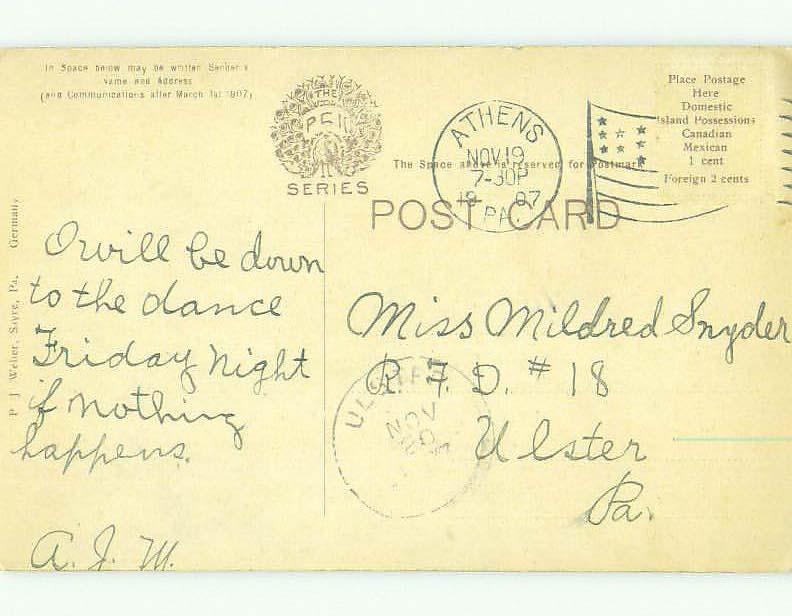 In Space below may be written Sender's
name and Address
(and Communications after March 1st 1907)
THE
PCK
SERIES
ATHENS
NOV 19
7-30P
1907
PA.
Place Postage
Here
Domestic
Island Possessions
Canadian
Mexican
1 cent
Foreign 2 cents
The Space above is reserved for Postmark
POST CARD
P J Weber, Sayre, Pa. Germany
I will be down
to the dance
Friday Night
if nothing
happens.
A. J. M.
Miss Mildred Snyder
R. F. D. # 18
Ulster
Pa.
ULSTER
NOV
20